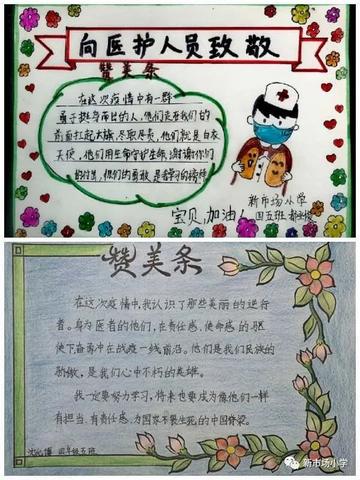 向医护人员致敬
赞美条
在这次疫情中有一群
勇于挺身而出的人,他们走在我们的
前面扛起大旗,尽职尽责,他们就是白衣
天使,他们用生命守护生命,谢谢你们
的付出,你们的勇敢,是
宝贝,加油!
新市场小学
四五班
赞美条
在这次疫情中,我认识了那些美丽的逆行
者。身为医者的他们,在责任感、使命感的驱
使下奋勇冲在战疫一线前沿。他们是我们民族的
骄傲,是我们心中不朽的英雄。
我一定要努力学习,将来也要成为像他们一样
有担当、有责任感,为国家不畏生死的中国脊梁。
四年级五班
新市场小学